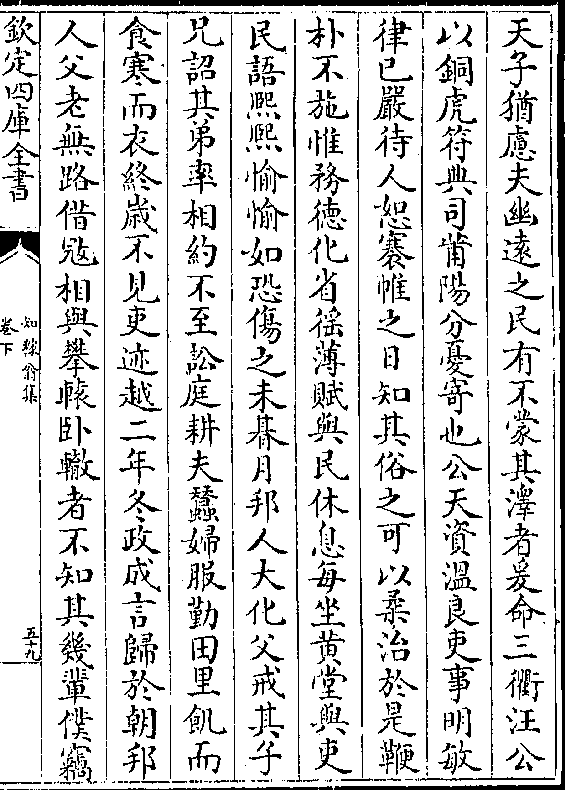 天子猶慮夫幽遠之民有不蒙其澤者爰命三衢汪公
以銅虎符典司莆陽分憂寄也公天資溫良吏事明敏
律已嚴待人恕褰帷之日知其俗之可以柔治於是鞭
朴不施惟務德化省徭薄賦與民休息每坐黄堂與吏
民語熙熙愉愉如恐傷之未朞月邦人大化父戒其子
兄詔其弟率相約不至訟庭耕夫蠶婦服勤田里飢而
食寒而衣終歲不見吏迹越二年冬政成言歸於朝邦
人父老無路借𡨥相與攀轅卧轍者不知其幾輩僕竊
欽定四庫全書
知稼翁集
卷下
五十九